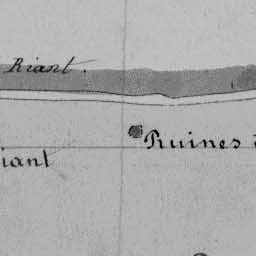 Riant.
Ruines
iant